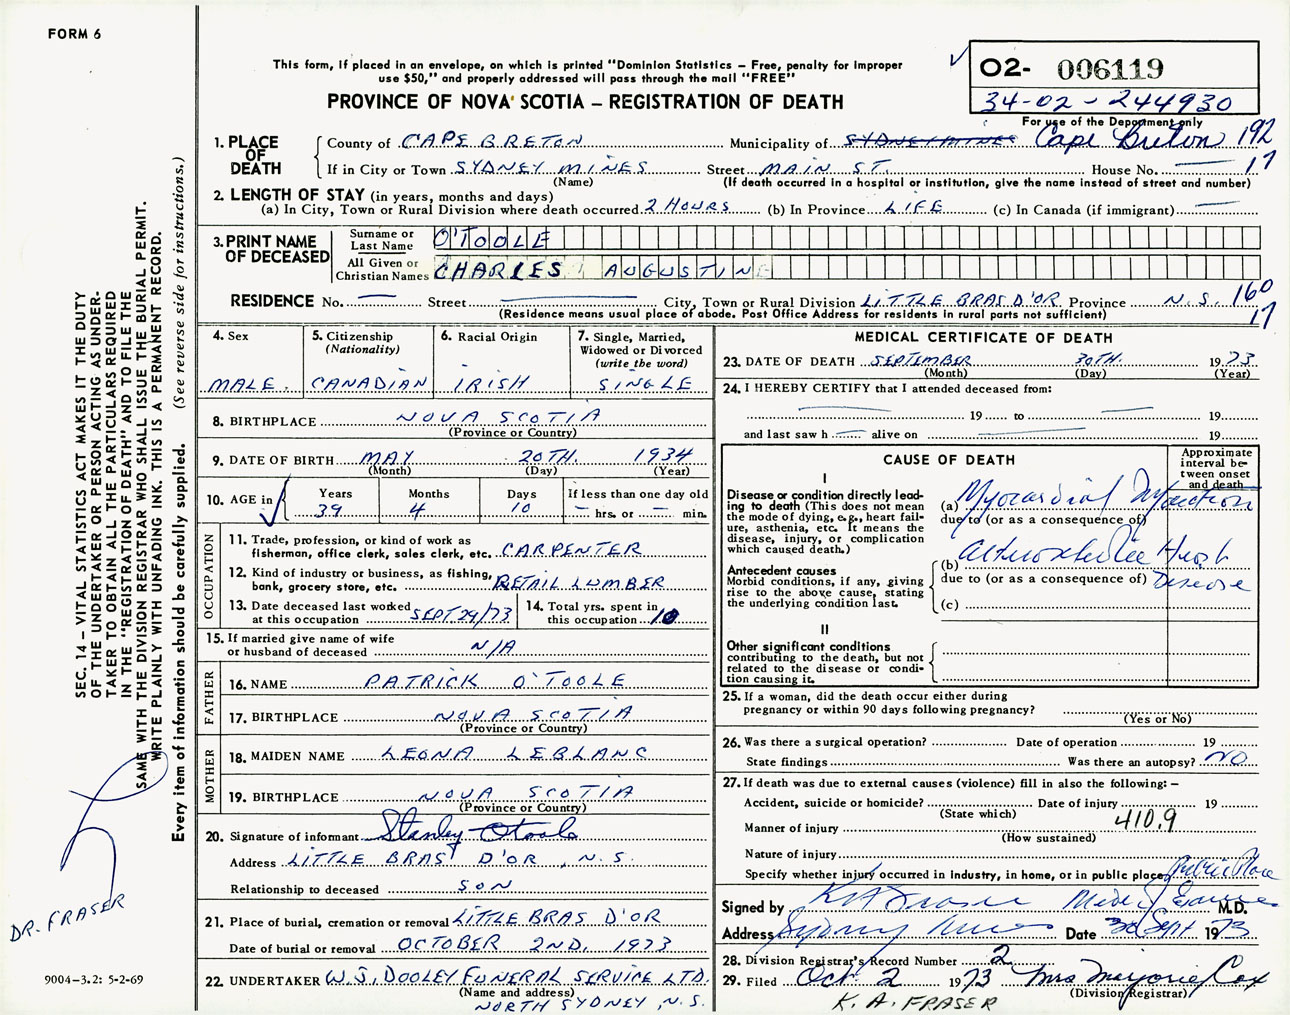 FORM 6
This form, if placed in an envelope, on which is printed "Dominion Statistics – Free, penalty for improper
use $50," and properly addressed will pass through the mail "FREE"
PROVINCE OF NOVA SCOTIA – REGISTRATION OF DEATH
02- 006119
34-02-244930
For use of the Department only
1. PLACE OF DEATH
County of CAPE BRETON Municipality of SYDNEY MINES Cape Breton 192
If in City or Town SYDNEY MINES Street MAIN ST. House No. — 17
(Name) (If death occurred in a hospital or institution, give the name instead of street and number)
2. LENGTH OF STAY (in years, months and days)
(a) In City, Town or Rural Division where death occurred 2 HOURS (b) In Province LIFE (c) In Canada (if immigrant) —
3. PRINT NAME OF DECEASED
Surname or Last Name O'TOOLE
All Given or Christian Names CHARLES AUGUSTINE
RESIDENCE No. — Street — City, Town or Rural Division LITTLE BRAS D'OR Province N.S. 160
(Residence means usual place of abode. Post Office Address for residents in rural parts not sufficient) 17
4. Sex
MALE.
5. Citizenship
(Nationality)
CANADIAN
6. Racial Origin
IRISH
7. Single, Married,
Widowed or Divorced
(write the word)
SINGLE
8. BIRTHPLACE NOVA SCOTIA
(Province or Country)
9. DATE OF BIRTH MAY 20TH. 1934
(Month) (Day) (Year)
10. AGE in
Years Months Days If less than one day old
39 4 10 — hrs. or — min.
OCCUPATION
11. Trade, profession, or kind of work as
fisherman, office clerk, sales clerk, etc. CARPENTER
12. Kind of industry or business, as fishing,
bank, grocery store, etc. RETAIL LUMBER
13. Date deceased last worked
at this occupation SEPT. 29/73
14. Total yrs. spent in
this occupation 10
15. If married give name of wife
or husband of deceased N/A
FATHER
16. NAME PATRICK O'TOOLE
17. BIRTHPLACE NOVA SCOTIA
(Province or Country)
MOTHER
18. MAIDEN NAME LEONA LEBLANC
19. BIRTHPLACE NOVA SCOTIA
(Province or Country)
20. Signature of informant Stanley O'Toole
Address LITTLE BRAS D'OR, N.S.
Relationship to deceased SON
21. Place of burial, cremation or removal LITTLE BRAS D'OR
Date of burial or removal OCTOBER 2ND. 1973
22. UNDERTAKER W.J. DOOLEY FUNERAL SERVICE LTD.
(Name and address)
NORTH SYDNEY, N.S.
MEDICAL CERTIFICATE OF DEATH
23. DATE OF DEATH SEPTEMBER 30TH. 1973
(Month) (Day) (Year)
24. I HEREBY CERTIFY that I attended deceased from:
— 19 — to — 19
and last saw h — alive on — 19
CAUSE OF DEATH
Approximate interval between onset and death
I
Disease or condition directly leading to death (This does not mean the mode of dying, e.g., heart failure, asthenia, etc. It means the disease, injury, or complication which caused death.)
(a) Myocardial Infarction
due to (or as a consequence of)
Antecedent causes
Morbid conditions, if any, giving rise to the above cause, stating the underlying condition last.
(b) Heart Disease
due to (or as a consequence of)
(c)
II
Other significant conditions
contributing to the death, but not related to the disease or condition causing it.
25. If a woman, did the death occur either during
pregnancy or within 90 days following pregnancy?
(Yes or No)
26. Was there a surgical operation? Date of operation 19
State findings Was there an autopsy? NO
27. If death was due to external causes (violence) fill in also the following: –
Accident, suicide or homicide? Date of injury 19
(State which)
Manner of injury 410.9
(How sustained)
Nature of injury
Specify whether injury occurred in industry, in home, or in public place Public Place
Signed by K A Fraser Medical Examiner M.D.
Address Sydney Mines Date 30 Sept 1973
28. Division Registrar's Record Number 2
29. Filed Oct. 2 1973 Mrs Marjorie Cox
(Division Registrar)
K. A. FRASER
SEC. 14 – VITAL STATISTICS ACT MAKES IT THE DUTY
OF THE UNDERTAKER OR PERSON ACTING AS UNDER-
TAKER TO OBTAIN ALL THE PARTICULARS REQUIRED
IN THE "REGISTRATION OF DEATH" AND TO FILE THE
SAME WITH THE DIVISION REGISTRAR WHO SHALL ISSUE THE BURIAL PERMIT.
WRITE PLAINLY WITH UNFADING INK. THIS IS A PERMANENT RECORD.
Every item of information should be carefully supplied. (See reverse side for instructions.)
DR. FRASER
9004–3.2: 5-2-69